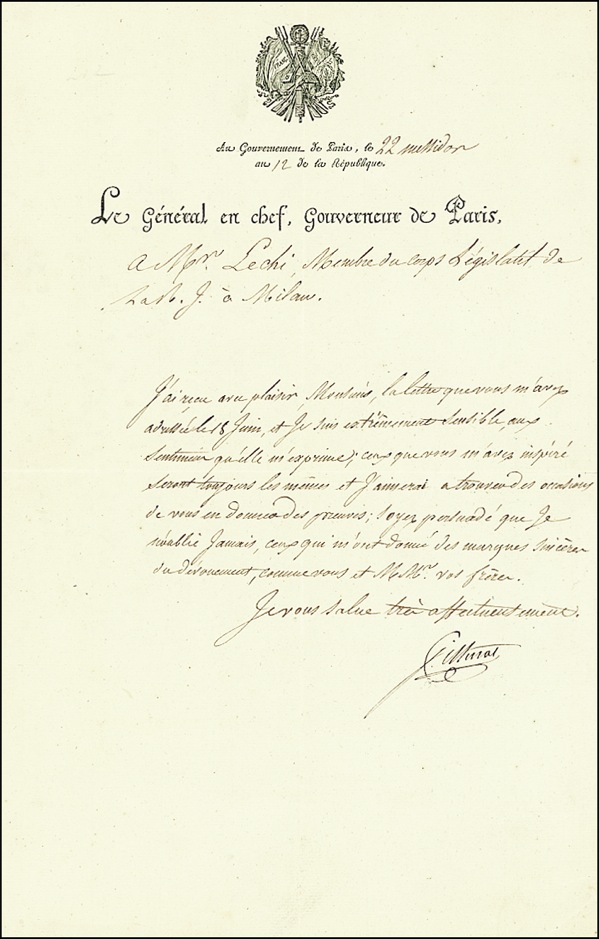 Au Gouvernement de Paris, le 22 messidor
an 12 de la République.
Le Général en chef, Gouverneur de Paris,
A Mr. Lechi, Membre du corps Législatif de
la R. I. à Milan.
J'ai reçu avec plaisir, Monsieur, la lettre que vous m'avez
adressée le 18 Juin, et Je suis extrêmement sensible aux
sentimens qu'elle m'exprime; ceux que vous m'avez inspiré
seront toujours les mêmes et J'aimerai a trouver des occasions
de vous en donner des preuves; soyez persuadé que Je
n'oublie Jamais, ceux qui m'ont donné des marques sincères
du dévouement, comme vous et MMrs. vos frères.
Je vous salue très affectueusement.
Murat